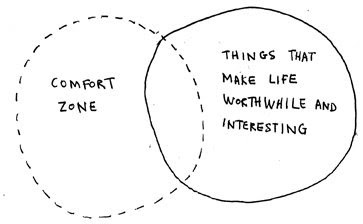 COMFORT
ZONE
THINGS THAT
MAKE LIFE
WORTHWHILE AND
INTERESTING